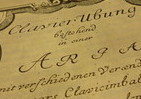 Clavier Ubung
bestehend
in einer
ARIA
mit verschiedenen Veraend
Clavicimbal